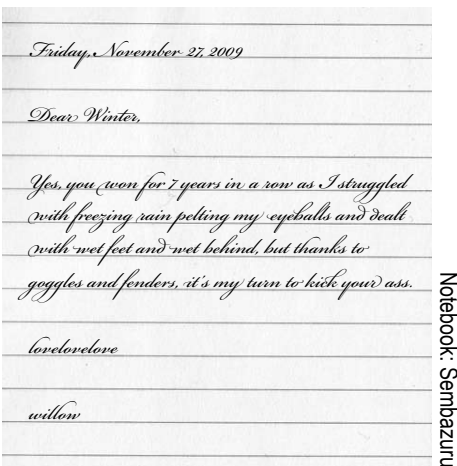 Friday, November 27, 2009
Dear Winter,
Yes, you won for 7 years in a row as I struggled
with freezing rain pelting my eyeballs and dealt
with wet feet and wet behind, but thanks to
goggles and fenders, it's my turn to kick your ass.
lovelovelove
willow
Notebook: Sembazuru